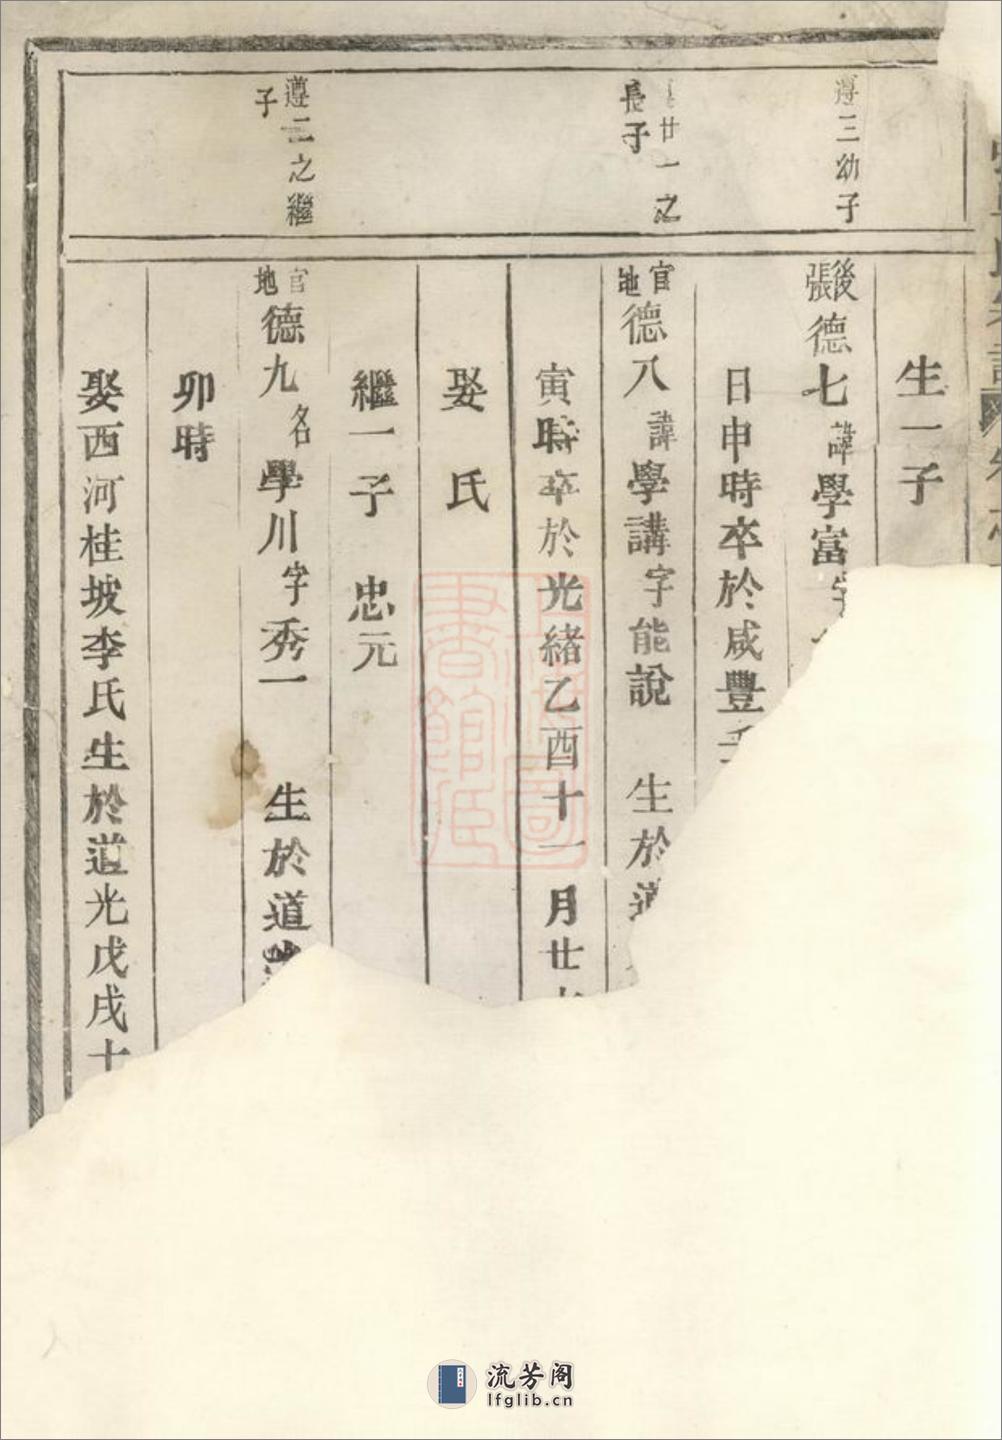 生一子
遵三幼子
後張德七諱學富字
日申時卒於咸豐壬
廿一之
長子
官地德八諱學講字能說 生於道
寅時卒於光緒乙酉十一月廿
娶 氏
繼一子 忠元
遵二之繼
子
官地德九名學川字秀一 生於道光
卯時
娶西河桂坡李氏生於道光戊戌十
流芳阁
lfglib.cn